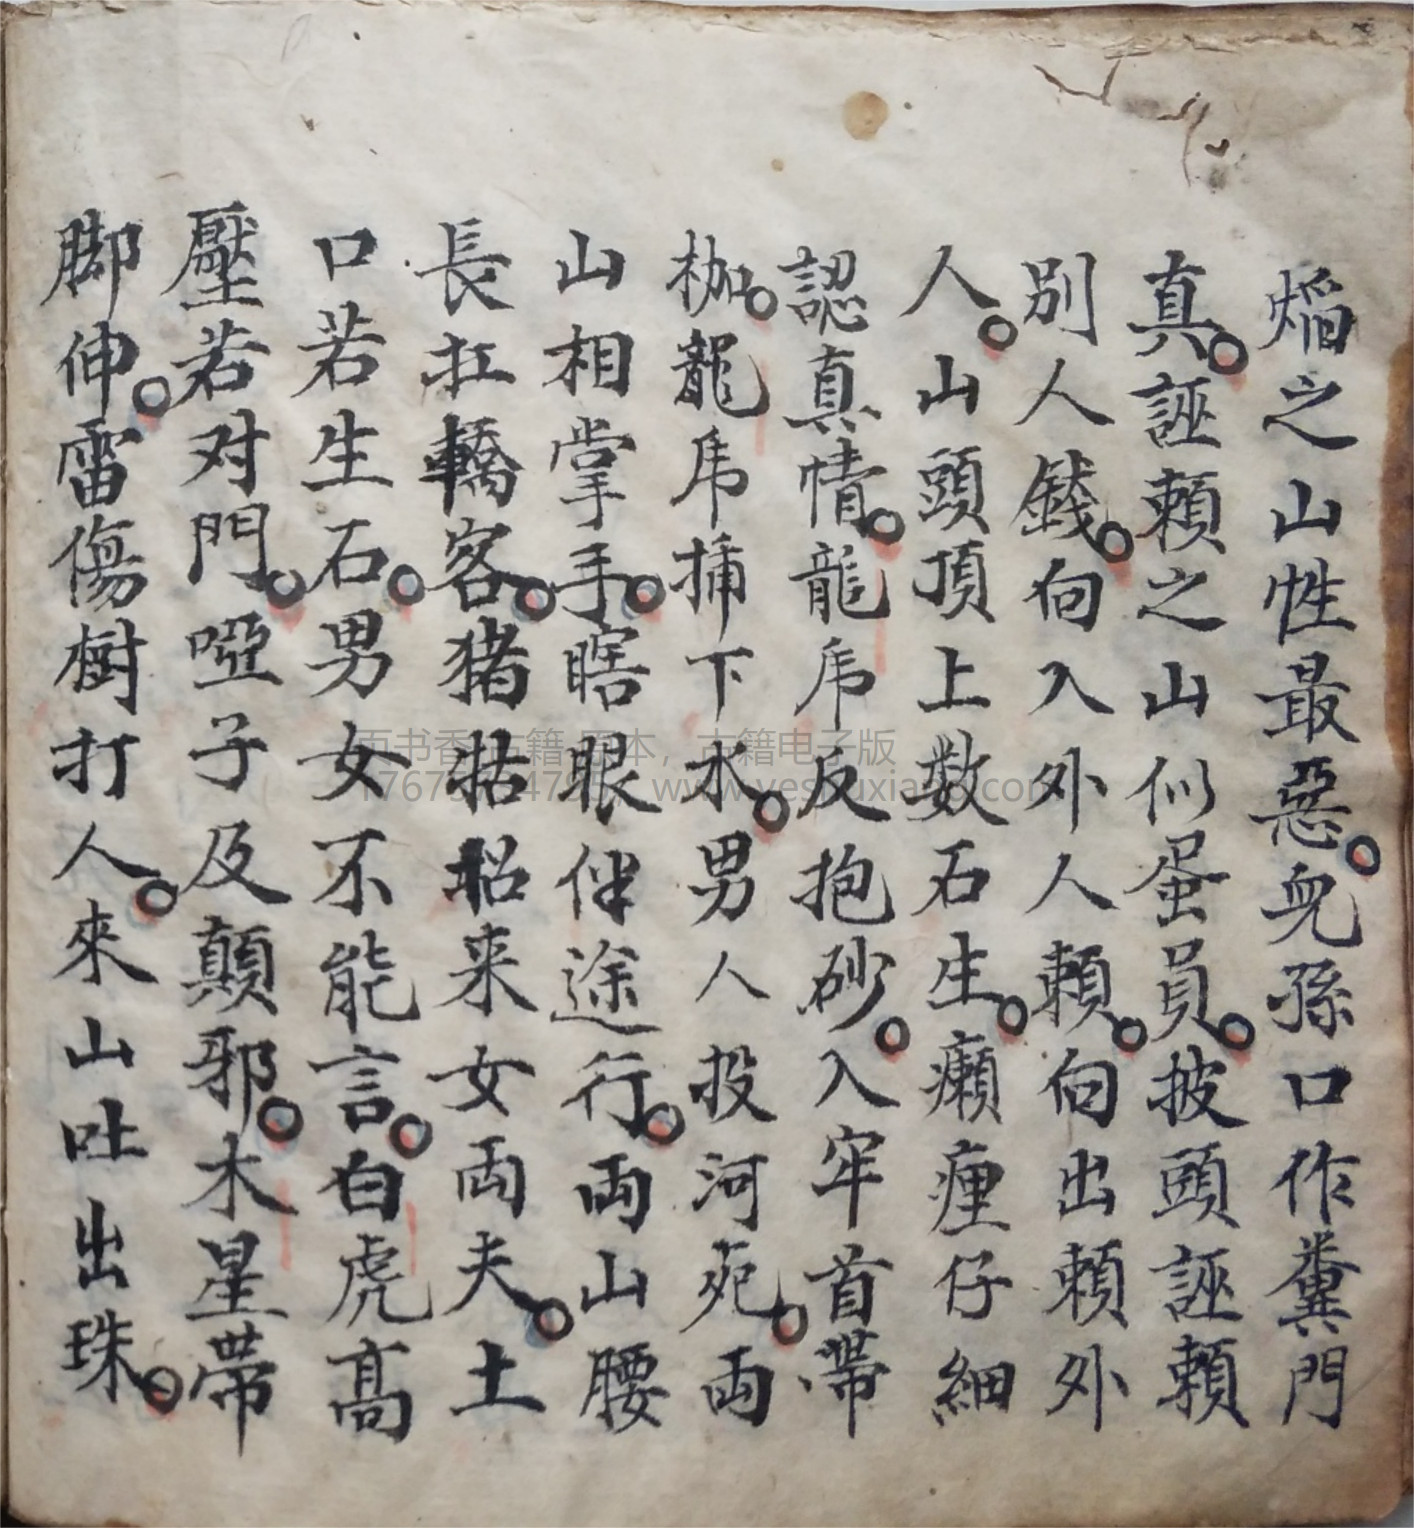 熖之山性最惡。兒孫口作糞門
真。誣賴之山似蛋員。披頭誣賴
別人錢。向入外人賴。向出賴外
人。山頭頂上数石生。癩痺仔細
認真情。龍虎反抱砂。入牢首帶
枷。龍虎捕下水。男人投河死。両
山相掌手。瞎眼伴途行。両山腰
長扛轎客。猪牯招来女両夫。土
口若生石。男女不能言。白虎高
壓若対門。啞子及顛邪。木星帶
脚伸。雷傷樹打人。來山吐出珠。